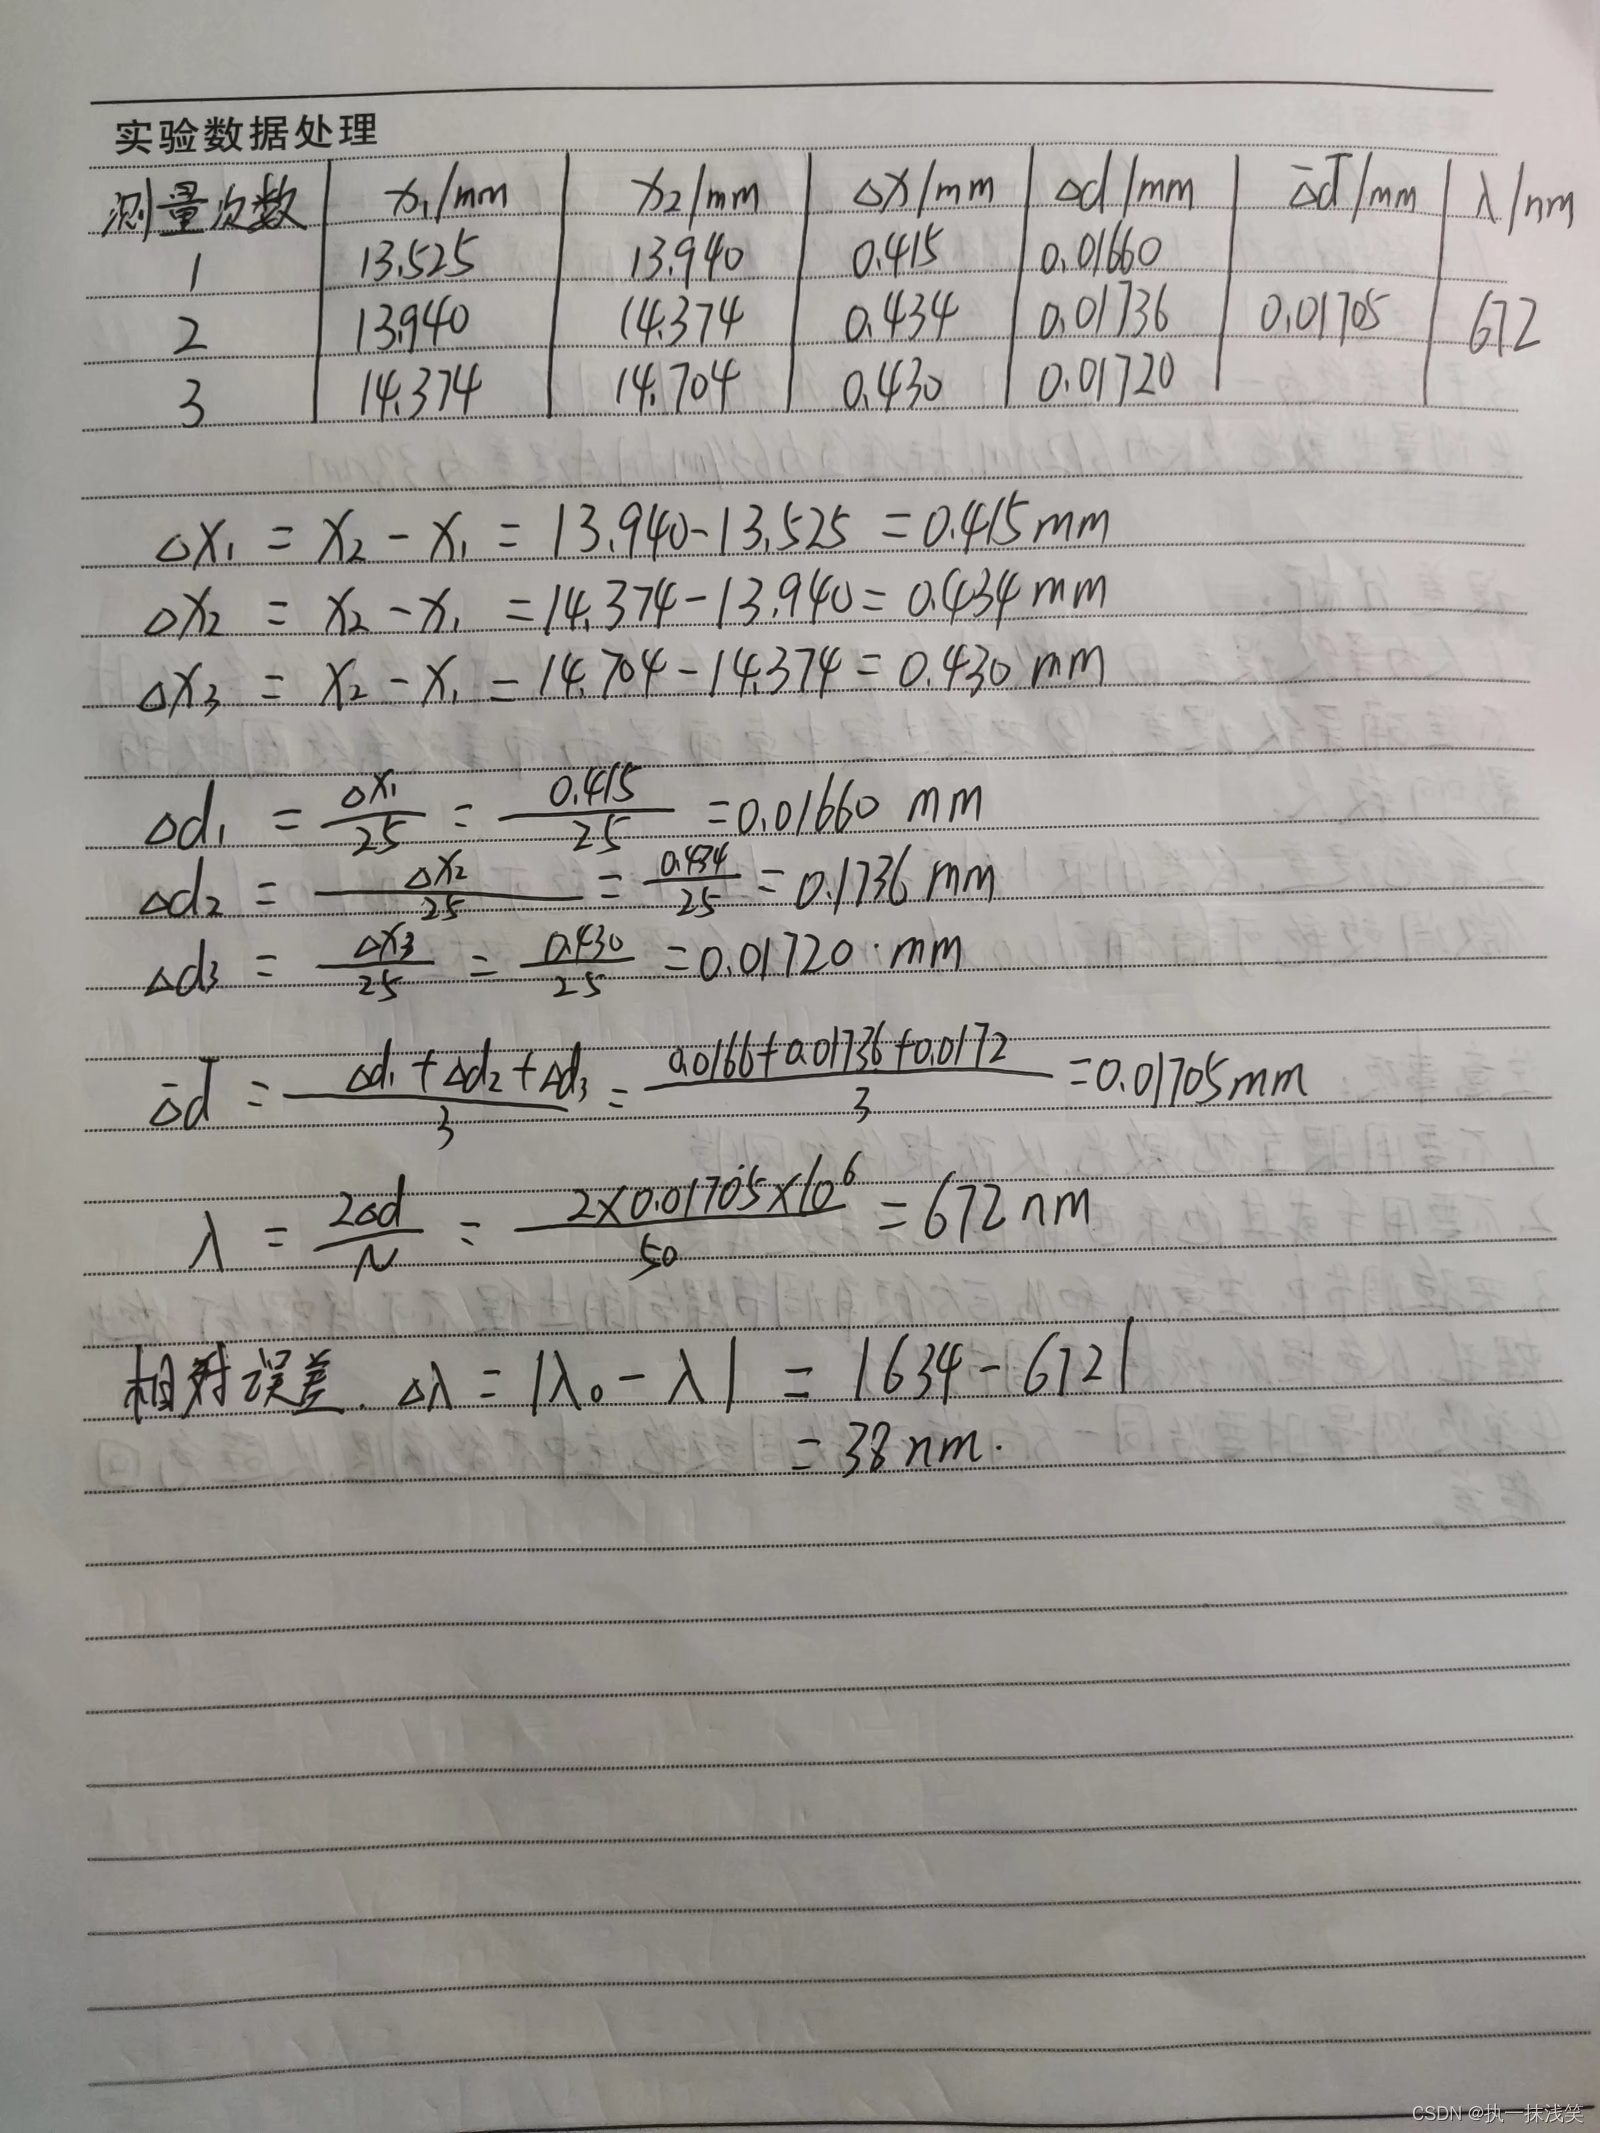 实验数据处理
测量次数 x₁/mm x₂/mm Δx/mm Δd/mm Δd̅/mm λ/nm
1 13.525 13.940 0.415 0.01660
2 13.940 14.374 0.434 0.01736 0.01705 672
3 14.374 14.704 0.430 0.01720
Δx₁ = x₂ - x₁ = 13.940-13.525 = 0.415mm
Δx₂ = x₂ - x₁ = 14.374-13.940 = 0.434mm
Δx₃ = x₂ - x₁ = 14.704-14.374 = 0.430mm
Δd₁ = Δx₁/25 = 0.415/25 = 0.01660 mm
Δd₂ = Δx₂/25 = 0.434/25 = 0.1736 mm
Δd₃ = Δx₃/25 = 0.430/25 = 0.01720 mm
Δd̅ = (Δd₁+Δd₂+Δd₃)/3 = (0.0166+0.01736+0.0172)/3 = 0.01705mm
λ = 2Δd/N = 2×0.01705×10⁶/50 = 672nm
相对误差. Δλ = |λ₀-λ| = |634-672|
= 38nm.
CSDN @执一抹浅笑